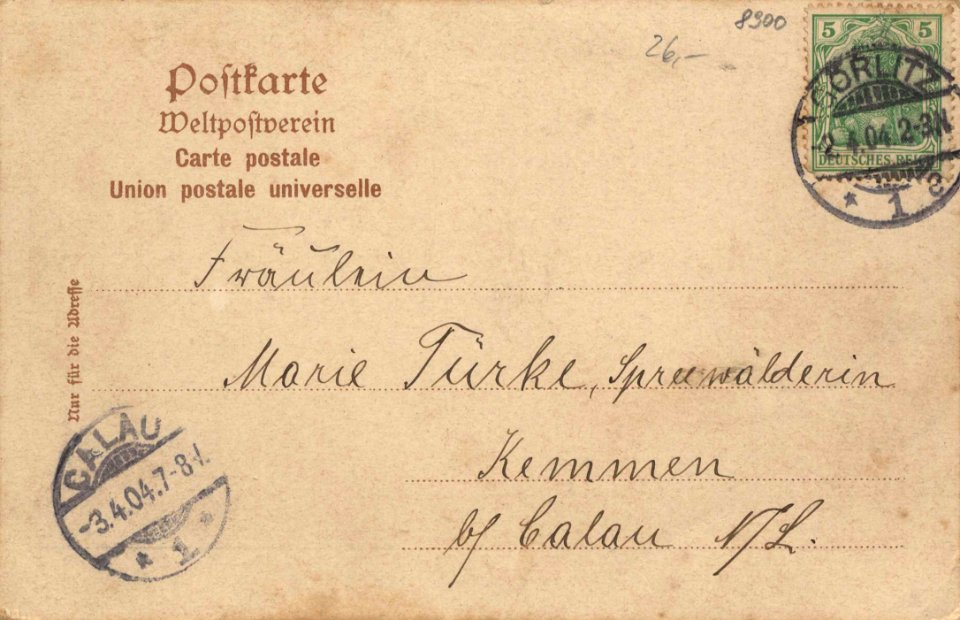 8900
26,-
5 5
DEUTSCHES REICH
GÖRLITZ
-2.4.04.2-3N.
* 1 c
Postkarte
Weltpostverein
Carte postale
Union postale universelle
Nur für die Adresse
Fräulein
Marie Türke, Spreewälderin
Kemmen
b/ Calau N/L.
CALAU
-3.4.04.7-8V.
* 1 *